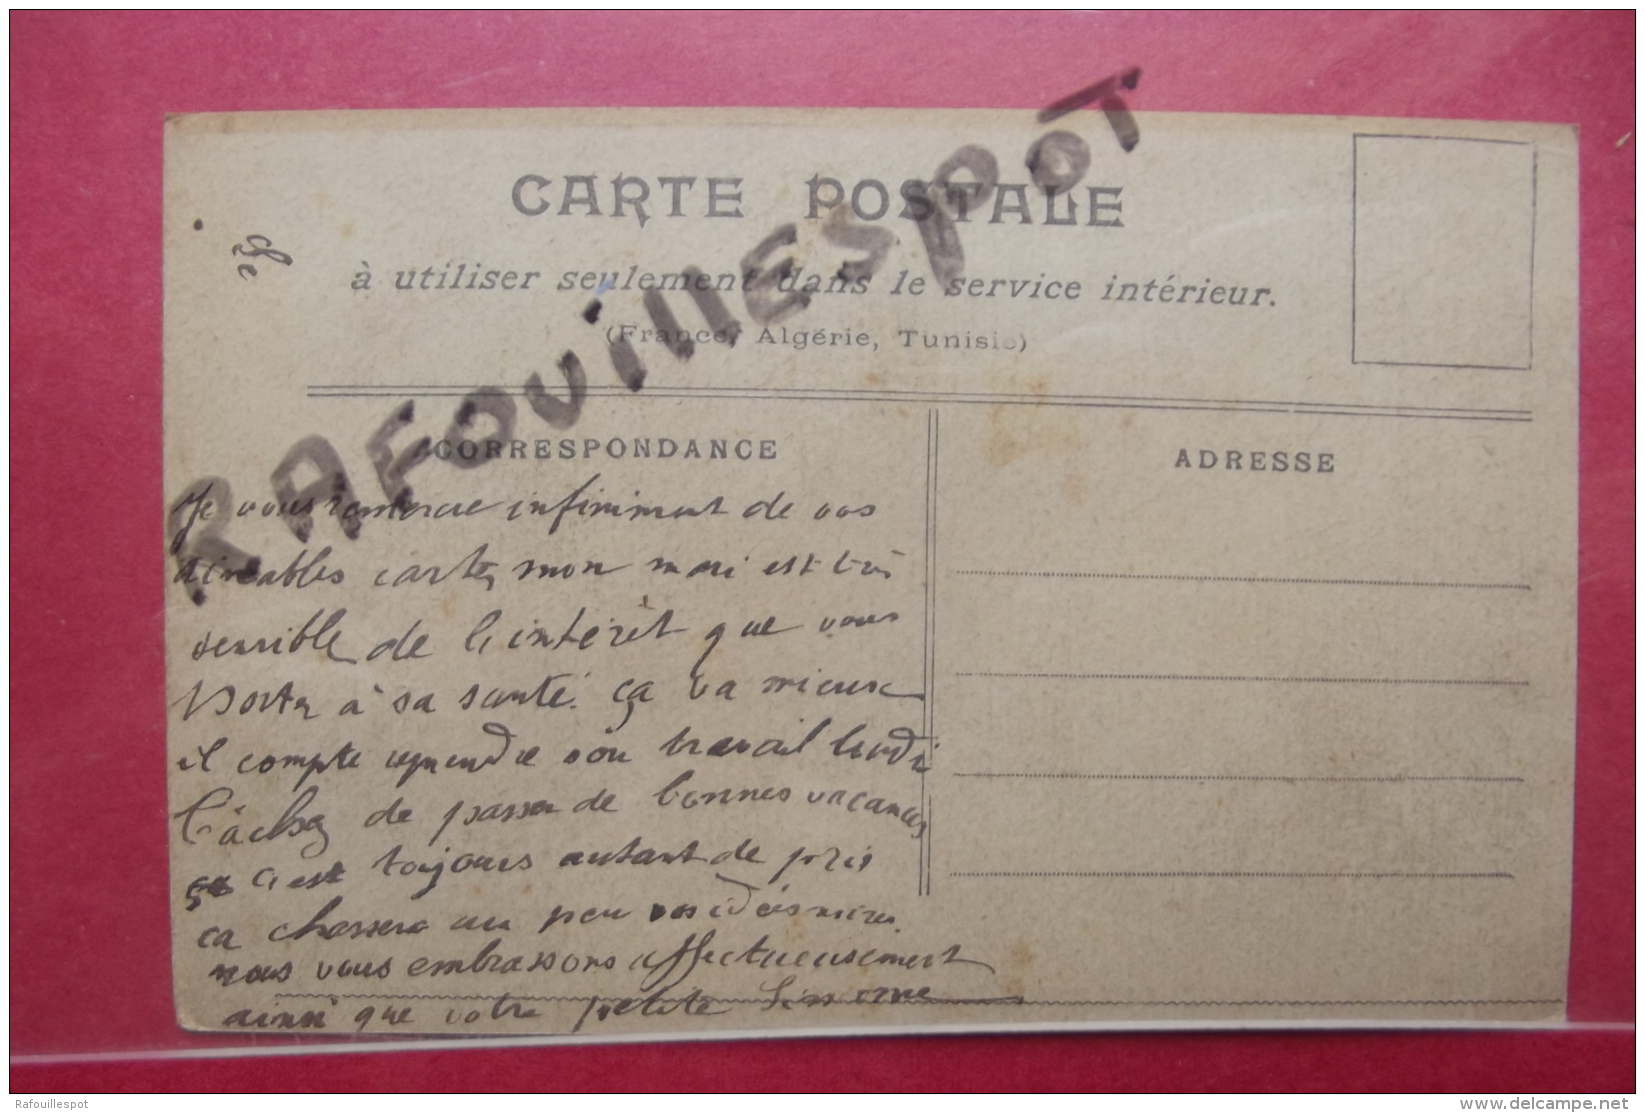 CARTE POSTALE
à utiliser seulement dans le service intérieur.
(France, Algérie, Tunisie)
RAFOUILLESPOT
CORRESPONDANCE
ADRESSE
Je vous remercie infiniment de vos
agréables cartes, mon mari est très
sensible de l'intérêt que vous
portez à sa santé. ça va mieux
il compte reprendre son travail lundi
Tâchez de passer de bonnes vacances
c'est toujours autant de pris
ça chassera un peu vos idées noires.
nous vous embrassons affectueusement
ainsi que votre petite
Rafouillespot
www.delcampe.net